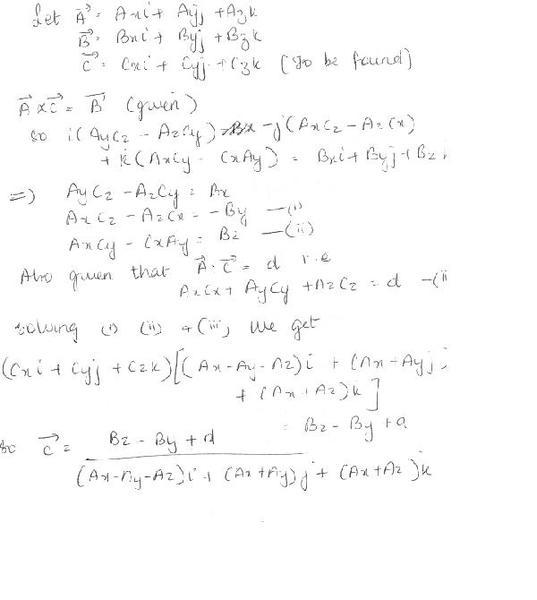 Let A⃗ = Axi + Ayj + Azk
B⃗ = Bxi + Byj + Bzk
C⃗ = Cxi + Cyj + Czk (To be found)
A⃗ x C⃗ = B⃗ (given)
so i(AyCz - AzCy) - j(AxCz - AzCx)
+ k(AxCy - CxAy) = Bxi + Byj + Bz
=) AyCz - AzCy = Ax
AxCz - AzCx = -By —(i)
AxCy - CxAy = Bz —(ii)
Also given that A⃗ . C⃗ = d i.e
AxCx + AyCy + AzCz = d —(ii
solving (i) (ii) + (iii) we get
(Cxi + Cyj + Czk)[(Ax - Ay - Az)i + (Ax + Ay)j
+ (Ax + Az)k]
= Bz - By + d
so C⃗ = Bz - By + d
(Ax - Ay - Az)i + (Ax + Ay)j + (Ax + Az)k